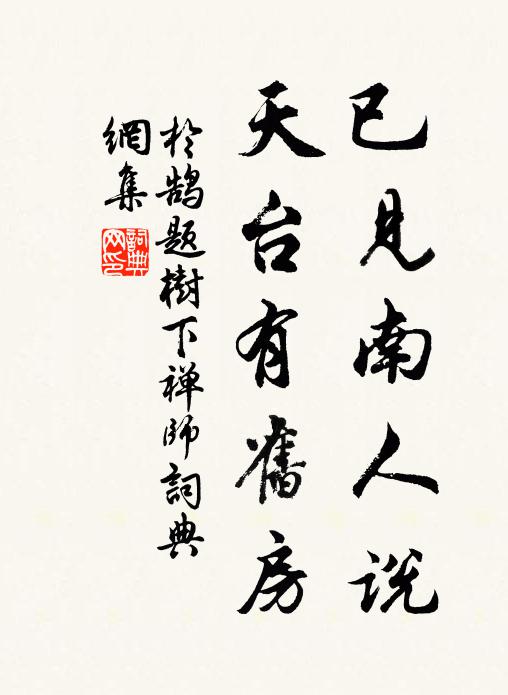 已見南人説
天台有舊房
於鵠題樹下禅師詞典
網集
詞典
网印